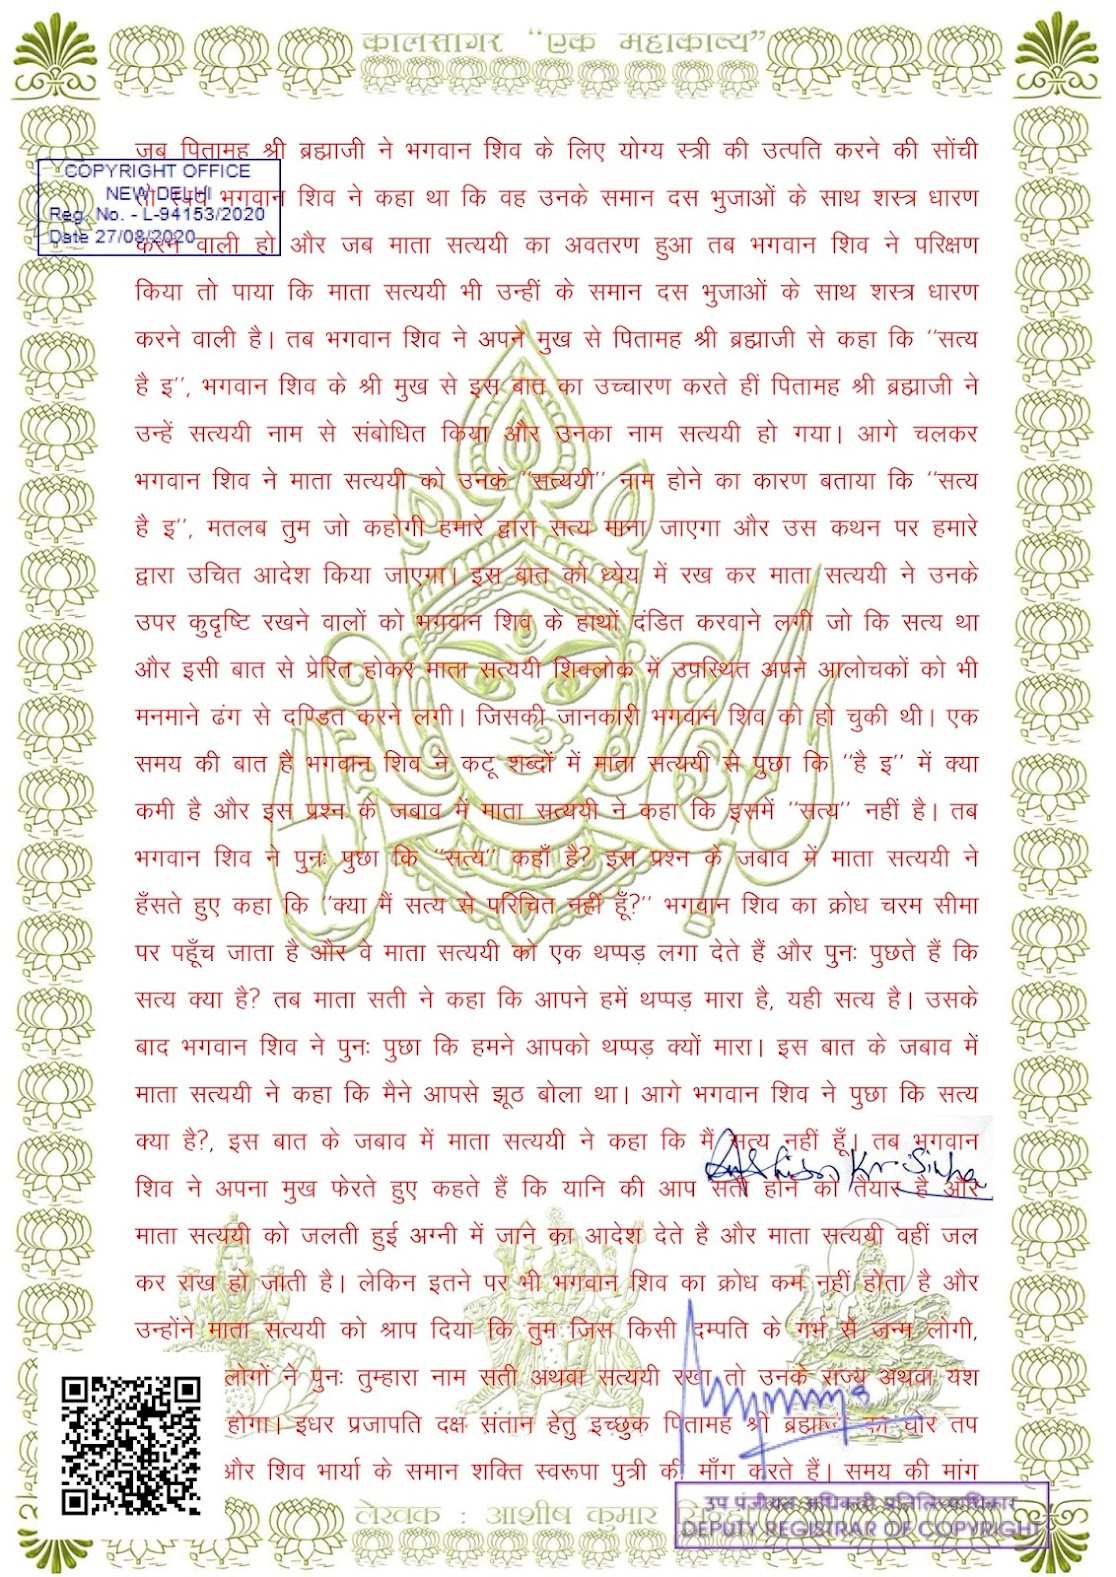 कालसागर “एक महाकाव्य”
जब पितामह श्री ब्रह्माजी ने भगवान शिव के लिए योग्य स्त्री की उत्पति करने की सोंची
COPYRIGHT OFFICE
NEW DELHI
Reg. No. - L-94153/2020
Date 27/08/2020
भगवान शिव ने कहा था कि वह उनके समान दस भुजाओं के साथ शस्त्र धारण
करने वाली हो और जब माता सत्ययी का अवतरण हुआ तब भगवान शिव ने परिक्षण
किया तो पाया कि माता सत्ययी भी उन्हीं के समान दस भुजाओं के साथ शस्त्र धारण
करने वाली है। तब भगवान शिव ने अपने मुख से पितामह श्री ब्रह्माजी से कहा कि ‘‘सत्य
है इ’’, भगवान शिव के श्री मुख से इस बात का उच्चारण करते हीं पितामह श्री ब्रह्माजी ने
उन्हें सत्ययी नाम से संबोधित किया और उनका नाम सत्ययी हो गया। आगे चलकर
भगवान शिव ने माता सत्ययी को उनके ‘‘सत्ययी’’ नाम होने का कारण बताया कि ‘‘सत्य
है इ’’, मतलब तुम जो कहोगी हमारे द्वारा सत्य माना जाएगा और उस कथन पर हमारे
द्वारा उचित आदेश किया जाएगा। इस बात को ध्येय में रख कर माता सत्ययी ने उनके
उपर कुदृष्टि रखने वालों को भगवान शिव के हाथों दंडित करवाने लगी जो कि सत्य था
और इसी बात से प्रेरित होकर माता सत्ययी शिवलोक में उपस्थित अपने आलोचकों को भी
मनमाने ढंग से दण्डित करने लगी। जिसकी जानकारी भगवान शिव को हो चुकी थी। एक
समय की बात है भगवान शिव ने कटू शब्दों में माता सत्ययी से पुछा कि ‘‘है इ’’ में क्या
कमी है और इस प्रश्न के जबाव में माता सत्ययी ने कहा कि इसमें ‘‘सत्य’’ नहीं है। तब
भगवान शिव ने पुनः पुछा कि ‘‘सत्य’’ कहाँ है? इस प्रश्न के जबाव में माता सत्ययी ने
हँसते हुए कहा कि ‘‘क्या मैं सत्य से परिचित नहीं हूँ?’’ भगवान शिव का क्रोध चरम सीमा
पर पहूँच जाता है और वे माता सत्ययी को एक थप्पड़ लगा देते हैं और पुनः पुछते हैं कि
सत्य क्या है? तब माता सती ने कहा कि आपने हमें थप्पड़ मारा है, यही सत्य है। उसके
बाद भगवान शिव ने पुनः पुछा कि हमने आपको थप्पड़ क्यों मारा। इस बात के जबाव में
माता सत्ययी ने कहा कि मैने आपसे झूठ बोला था। आगे भगवान शिव ने पुछा कि सत्य
क्या है?, इस बात के जबाव में माता सत्ययी ने कहा कि मैं सत्य नहीं हूँ। तब भगवान
शिव ने अपना मुख फेरते हुए कहते हैं कि यानि की आप सती होने को तैयार है और
माता सत्ययी को जलती हुई अग्नी में जाने का आदेश देते है और माता सत्ययी वहीं जल
कर राख हो जाती है। लेकिन इतने पर भी भगवान शिव का क्रोध कम नहीं होता है और
उन्होंने माता सत्ययी को श्राप दिया कि तुम जिस किसी दम्पति के गर्भ से जन्म लोगी,
लोगों ने पुनः तुम्हारा नाम सती अथवा सत्ययी रखा तो उनके राज्य अथवा यश
होगा। इधर प्रजापति दक्ष संतान हेतु इच्छुक पितामह श्री ब्रह्माजी का घोर तप
और शिव भार्या के समान शक्ति स्वरूपा पुत्री की माँग करते हैं। समय की मांग
लेखक : आशीष कुमार
उप पंजीयक अधिकारी प्रतिलिप्याधिकार
DEPUTY REGISTRAR OF COPYRIGHT